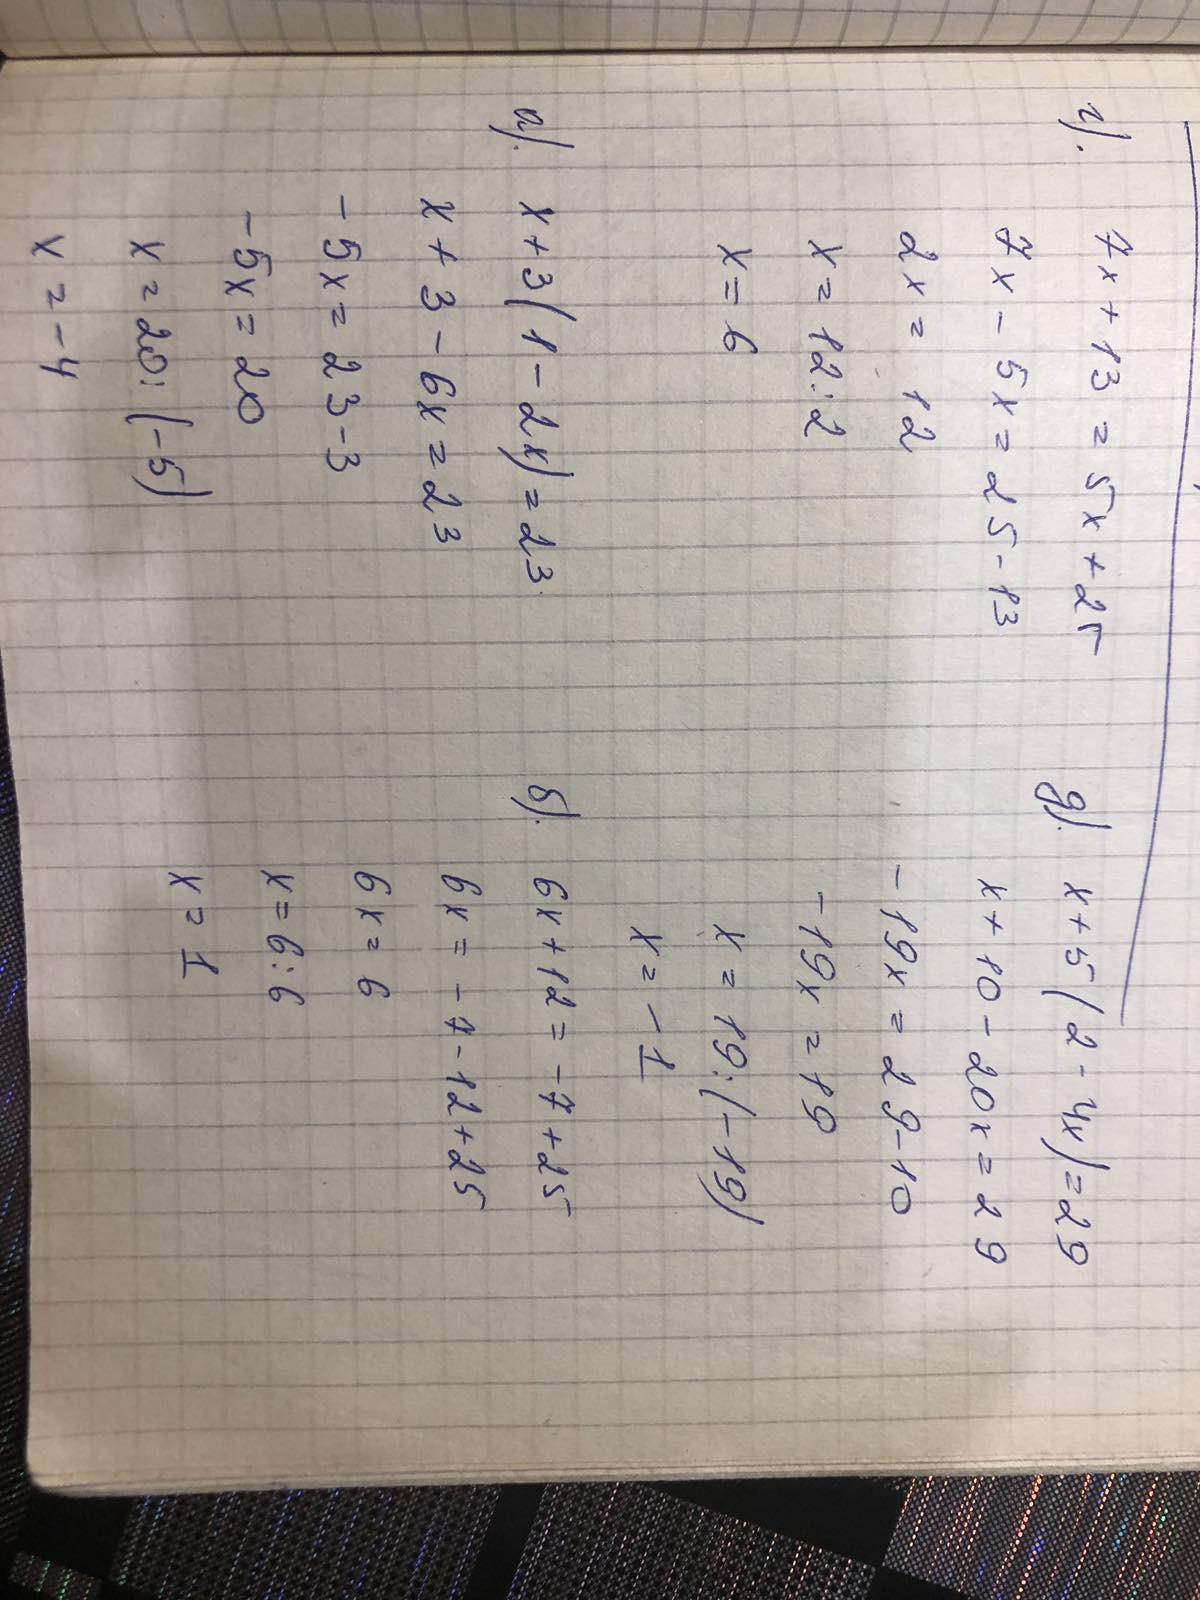 г).
7x + 13 = 5x + 25
7x - 5x = 25 - 13
2x = 12
x = 12:2
x = 6
д).
x + 5(2 - 4x) = 29
x + 10 - 20x = 29
-19x = 29-10
-19x = 19
x = 19:(-19)
x = -1
а).
x + 3(1 - 2x) = 23
x + 3 - 6x = 23
-5x = 23-3
-5x = 20
x = 20:(-5)
x = -4
б).
6x + 12 = -7 + 25
6x = -7-12+25
6x = 6
x = 6:6
x = 1